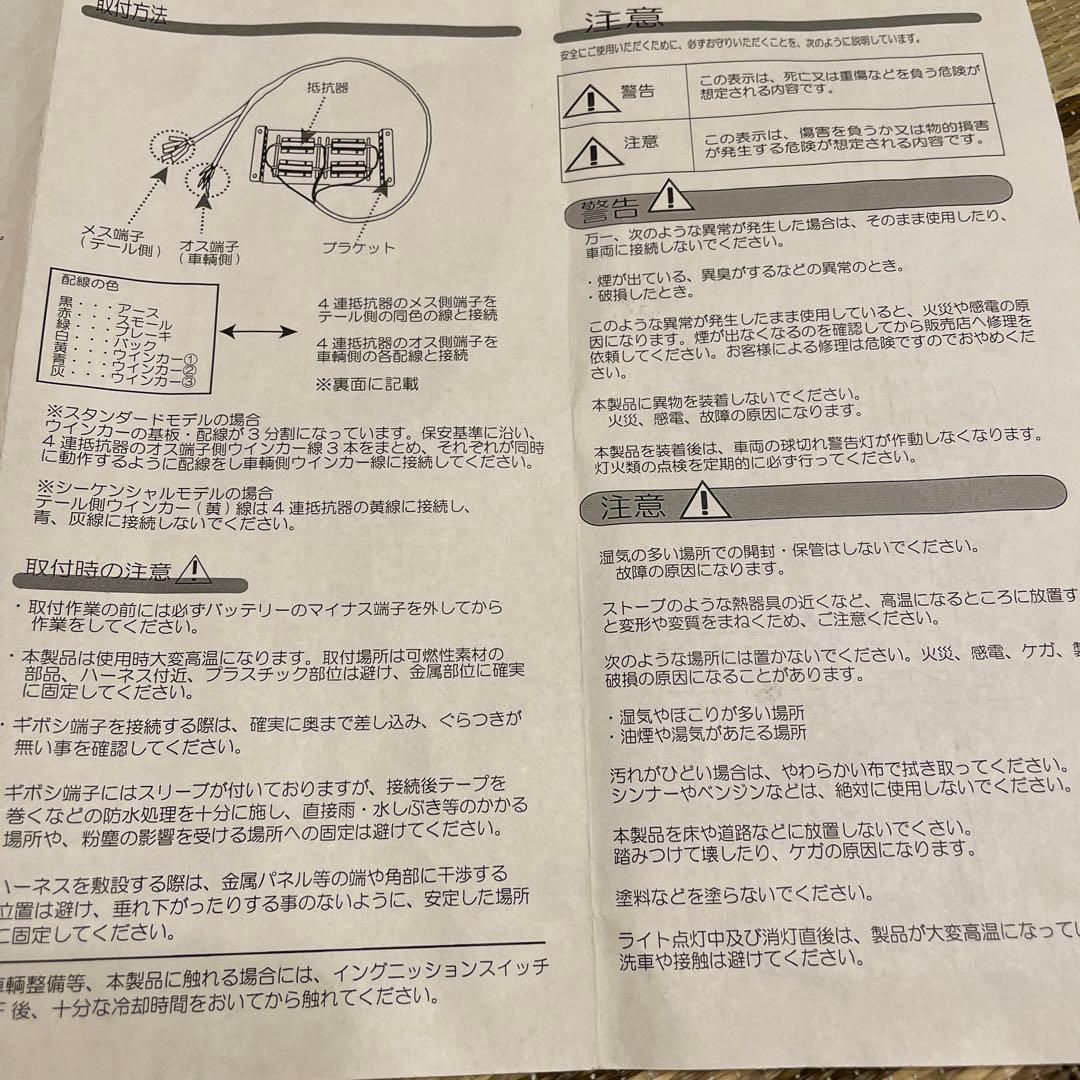 取付方法
抵抗器
メス端子
(テール側)
オス端子
(車輌側)
ブラケット
配線の色
黒・・・アース
赤・・・スモール
緑・・・ブレーキ
白・・・バック
黄・・・ウインカー①
青・・・ウインカー②
灰・・・ウインカー③
4連抵抗器のメス側端子を
テール側の同色の線と接続
4連抵抗器のオス側端子を
車輌側の各配線と接続
※裏面に記載
※スタンダードモデルの場合
ウインカーの基板・配線が3分割になっています。保安基準に沿い、
4連抵抗器のオス端子側ウインカー線3本をまとめ、それぞれが同時
に動作するように配線をし車輌側ウインカー線に接続してください。
※シーケンシャルモデルの場合
テール側ウインカー(黄)線は4連抵抗器の黄線に接続し、
青、灰線に接続しないでください。
取付時の注意
・取付作業の前には必ずバッテリーのマイナス端子を外してから
作業をしてください。
・本製品は使用時大変高温になります。取付場所は可燃性素材の
部品、ハーネス付近、プラスチック部位は避け、金属部位に確実
に固定してください。
・ギボシ端子を接続する際は、確実に奥まで差し込み、ぐらつきが
無い事を確認してください。
ギボシ端子にはスリーブが付いておりますが、接続後テープを
巻くなどの防水処理を十分に施し、直接雨・水しぶき等のかかる
場所や、粉塵の影響を受ける場所への固定は避けてください。
ハーネスを敷設する際は、金属パネル等の端や角部に干渉する
位置は避け、垂れ下がったりする事のないように、安定した場所
に固定してください。
車輌整備等、本製品に触れる場合には、イングニッションスイッチ
F後、十分な冷却時間をおいてから触れてください。
注意
安全にご使用いただくために、必ずお守りいただくことを、次のように説明しています。
警告
この表示は、死亡又は重傷などを負う危険が
想定される内容です。
注意
この表示は、傷害を負うか又は物的損害
が発生する危険が想定される内容です。
警告
万一、次のような異常が発生した場合は、そのまま使用したり、
車両に接続しないでください。
・煙が出ている、異臭がするなどの異常のとき。
・破損したとき。
このような異常が発生したまま使用していると、火災や感電の原
因になります。煙が出なくなるのを確認してから販売店へ修理を
依頼してください。お客様による修理は危険ですのでおやめくだ
さい。
本製品に異物を装着しないでください。
火災、感電、故障の原因になります。
本製品を装着後は、車両の球切れ警告灯が作動しなくなります。
灯火類の点検を定期的に必ず行ってください。
注意
湿気の多い場所での開封・保管はしないでください。
故障の原因になります。
ストーブのような熱器具の近くなど、高温になるところに放置す
と変形や変質をまねくため、ご注意ください。
次のような場所には置かないでください。火災、感電、ケガ、製
破損の原因になることがあります。
・湿気やほこりが多い場所
・油煙や湯気があたる場所
汚れがひどい場合は、やわらかい布で拭き取ってください。
シンナーやベンジンなどは、絶対に使用しないでください。
本製品を床や道路などに放置しないでくさい。
踏みつけて壊したり、ケガの原因になります。
塗料などを塗らないでください。
ライト点灯中及び消灯直後は、製品が大変高温になってい
洗車や接触は避けてください。